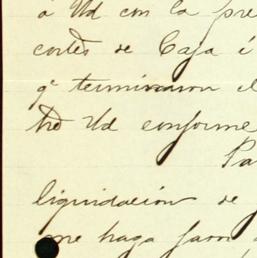 á Ud con la pre
cortes de Caja é
qe terminaron el
Ud conforme
Pa
liquidacion de
me haga favor